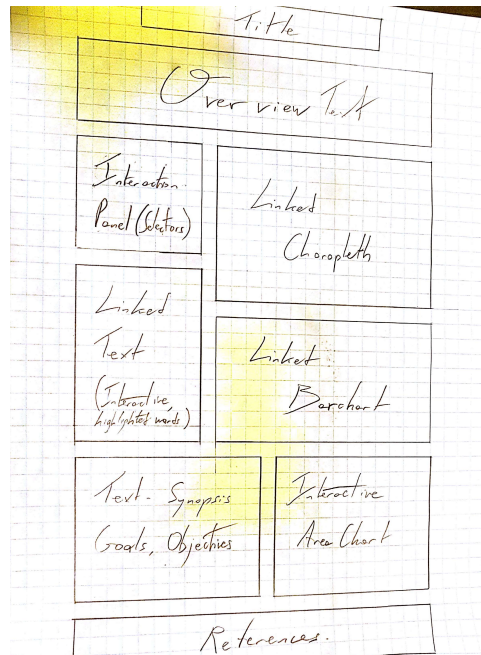 Title
Overview Text
Interaction
Panel (Selectors)
Linked
Choropleth
Linked
Text
(Interactive,
highlighted words)
Linked
Barchart
Text - Synopsis
Goals, Objectives
Interactive
Area Chart
References.